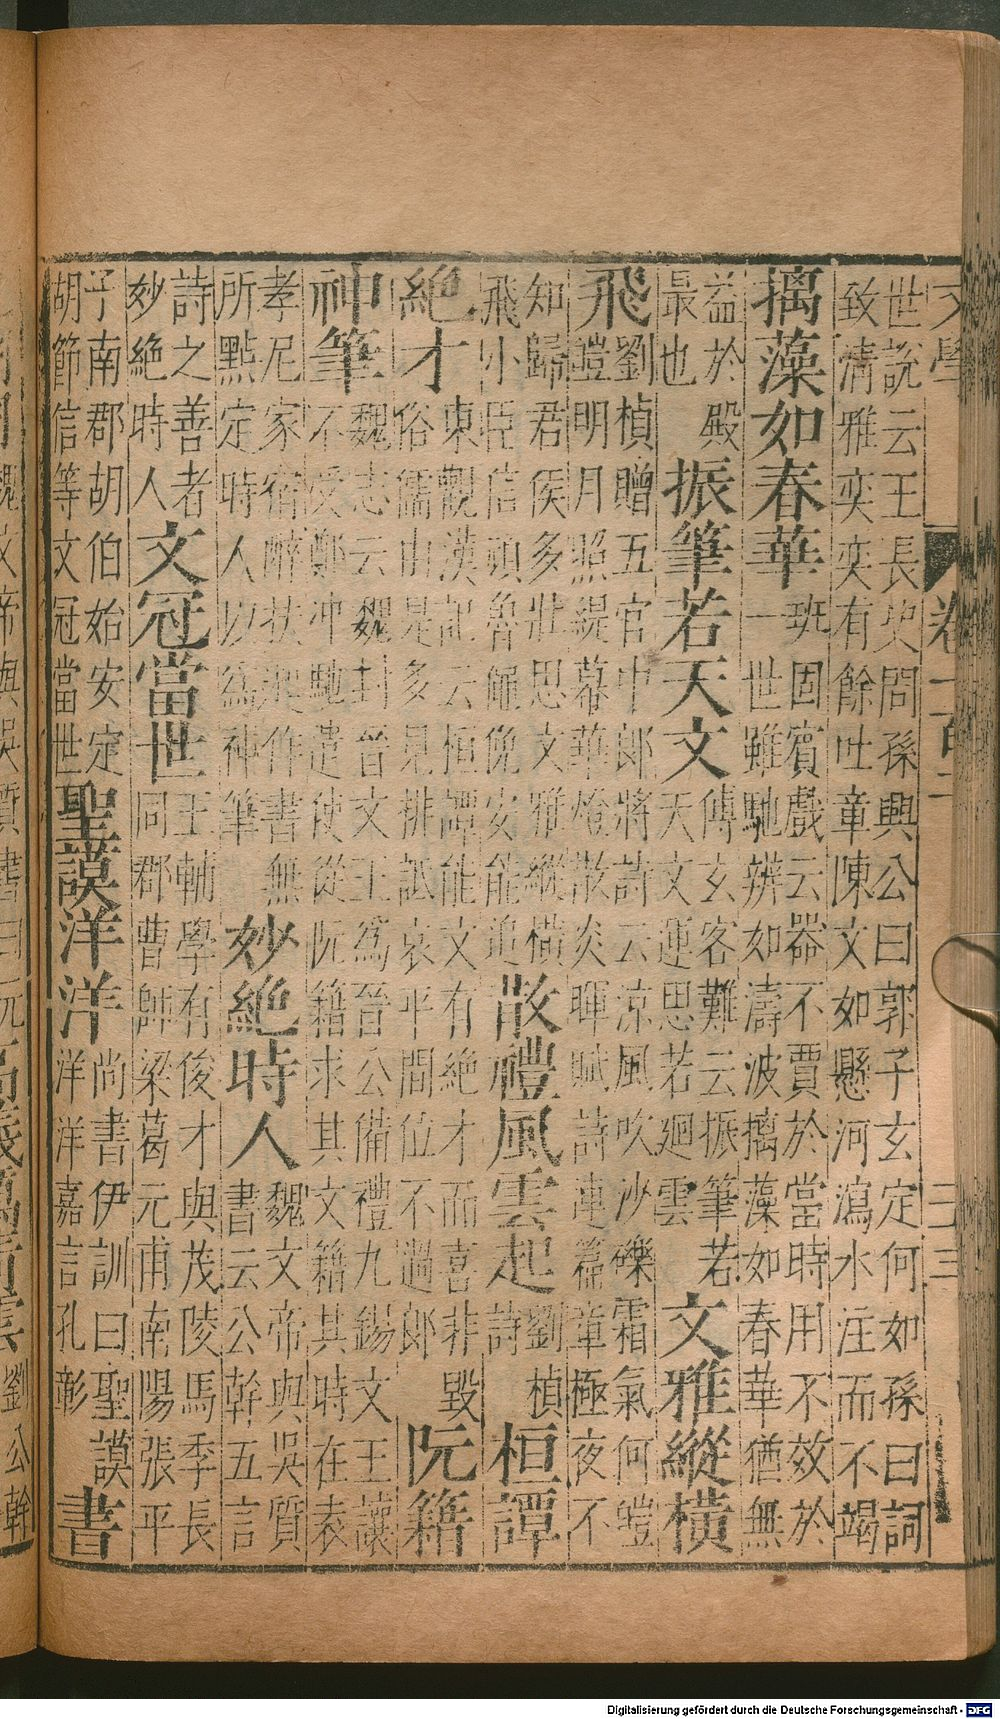 文學 卷一百 三三
世說云王長史問孫興公曰郭子玄定何如孫曰詞
致清雅奕奕有餘吐章陳文如懸河瀉水注而不竭
摛藻如春華 班固賓戲云器不賈於當時用不效於
一世雖馳辨如濤波摛藻如春華猶無
益於殿
最也 振筆若天文 傅玄客難云振筆若
天文運思若廻雲 文雅縱橫
飛 劉楨贈五官中郎將詩云涼風吹沙礫霜氣何皚
皚明月照緹幕華燈散炎暉賦詩連篇章極夜不
知歸君侯多壯思文雅縱橫
飛小臣信頑魯僶俛安能追 散禮風雲起 劉楨
詩 桓譚
絕才 東觀漢記云桓譚能文有絕才而喜非毀
俗儒由是多見排詆哀平間位不過郎 阮籍
神筆 魏志云魏封晉文王為晉公備禮九錫文王讓
不受鄭冲馳遣使從阮籍求其文籍其時在袁
孝尼家宿醉扶起作書無
所點定時人以為神筆 妙絕時人 魏文帝與吳質
書云公幹五言
詩之善者
妙絕時人 文冠當世 王輔學有俊才與茂陵馬季長
同郡曹師梁葛元甫南陽張平
子南郡胡伯始安定
胡節信等文冠當世 聖謨洋洋 尚書伊訓曰聖謨
洋洋嘉言孔彰 書
Digitalisierung gefördert durch die Deutsche Forschungsgemeinschaft - DFG